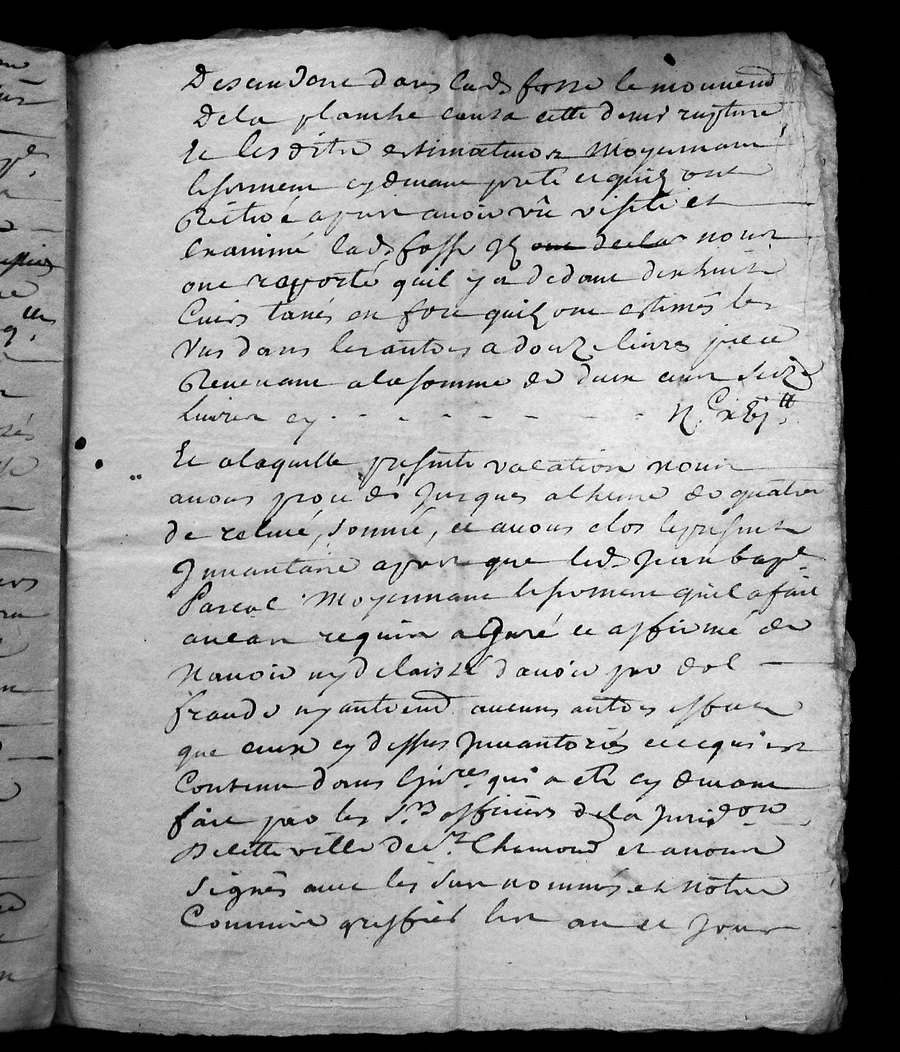 Descendere dans lad. fosse le mouvend
De la planche causa cette demi rupture
Et lesdits estimateurs Moyennant
le serment cy devant preté et quils ont
Reitéré apres avoir vû visité et
Examiné lad. fosse Ils ont declar nous
ont raporté quil y a dedans dix huit
Cuirs tanés en fort quils ont estimés les
Uns dans les autres a douze livres piece
Revenant a la somme de deux cent seize
livres cy - - - - - - - IJ C xvj tt
Et a laquelle presente vacation nous
avons procedé Jusques a lheure de quatre
de relevé, sonnée, et avons clos le present
Inventaire apres que led. Jean bapt.
Pascal Moyennant le serment quil a fait
au cas requis a Juré et affirmé de
Navoir ny delaissé davoir par dol
fraude ny autrend. aucuns autres effets
que ceux cy dessus Inventoriés et ce qui est
Contenu dans qui a eté cy devant
fait par les Srs officiers de la Juridon
De cette ville de St. Chamond et avons
Signés avec les sus nommés et notre
Commis greffier les an et Jour